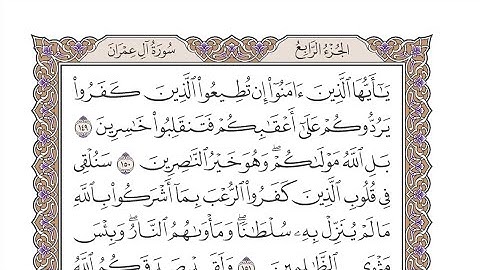 الجزء الرابع
سورة آل عمران
يَٰٓأَيُّهَا ٱلَّذِينَ ءَامَنُوٓا۟ إِن تُطِيعُوا۟ ٱلَّذِينَ كَفَرُوا۟
يَرُدُّوكُمْ عَلَىٰٓ أَعْقَٰبِكُمْ فَتَنقَلِبُوا۟ خَٰسِرِينَ ١٤٩
بَلِ ٱللَّهُ مَوْلَىٰكُمْ ۖ وَهُوَ خَيْرُ ٱلنَّٰصِرِينَ ١٥٠ سَنُلْقِى
فِى قُلُوبِ ٱلَّذِينَ كَفَرُوا۟ ٱلرُّعْبَ بِمَآ أَشْرَكُوا۟ بِٱللَّهِ
مَا لَمْ يُنَزِّلْ بِهِۦ سُلْطَٰنًا ۖ وَمَأْوَىٰهُمُ ٱلنَّارُ ۚ وَبِئْسَ
مَثْوَى ٱلظَّٰلِمِينَ ١٥١ وَلَقَدْ صَدَقَكُمُ ٱللَّهُ